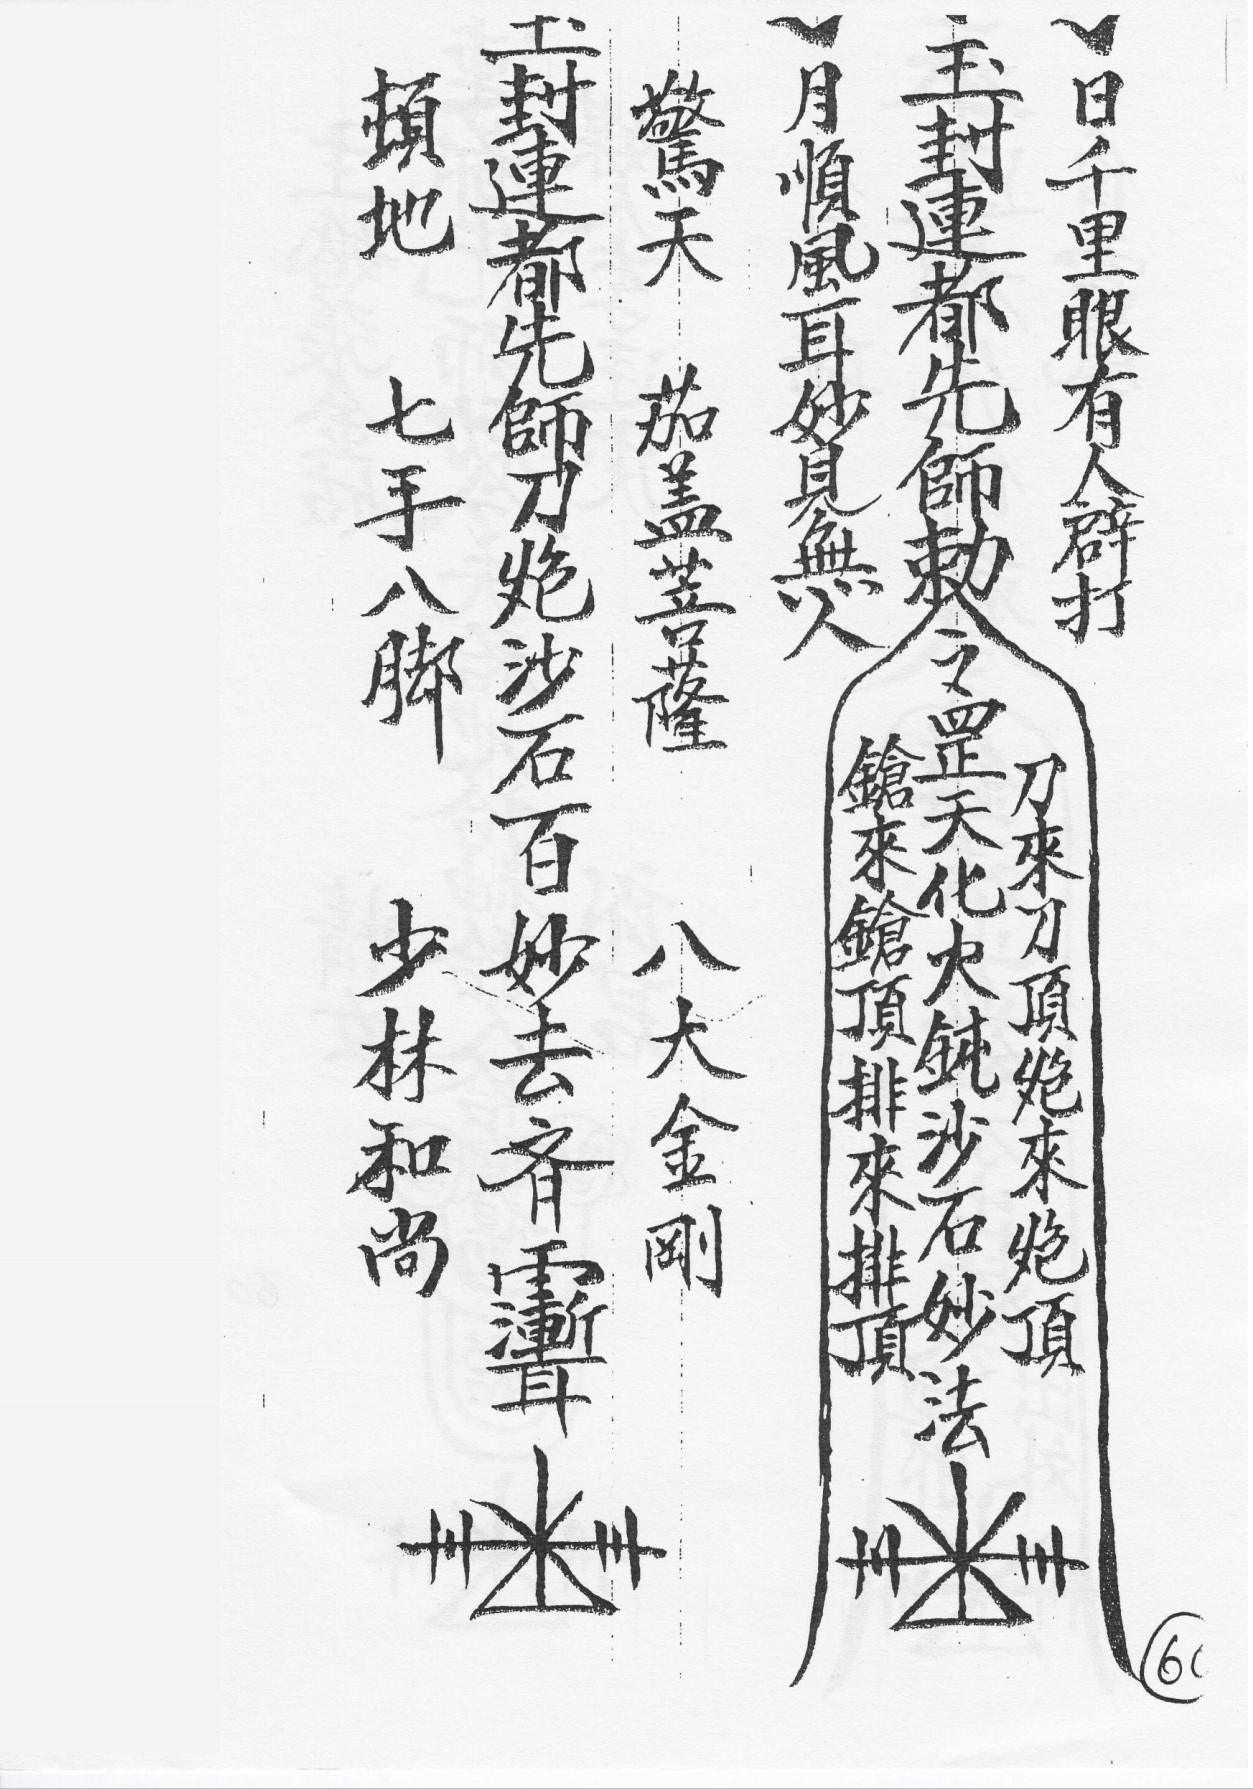 日千里眼有人辟打
玉封連都先師勅令罡天化火鈍沙石妙法
刀來刀頂炮來炮頂
鎗來鎗頂排來排頂
月順風耳妙見無人
驚天 茄盖菩薩 八大金剛
玉封連都先師刀炮沙石百妙去斉
頓地 七手八脚 少林和尚